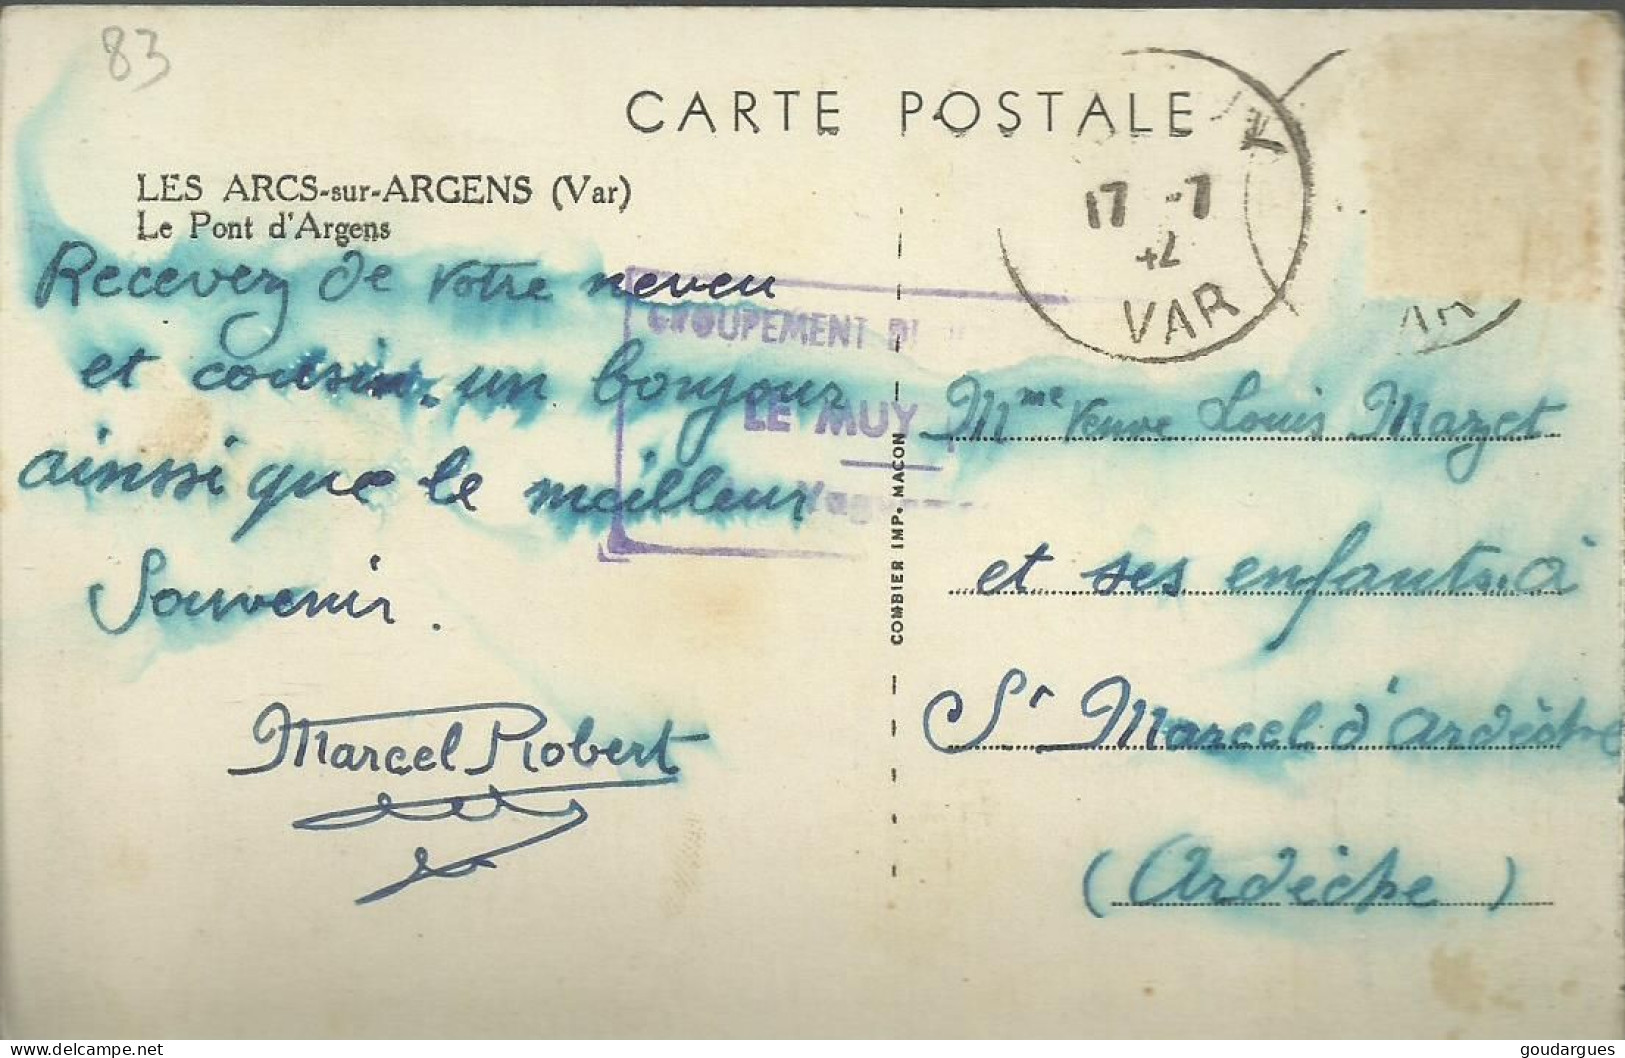 83
CARTE POSTALE
LES ARCS-sur-ARGENS (Var)
Le Pont d'Argens
17 -7
42
VAR
Recevez de votre neveu
et cousin un bonjour
ainssi que le meilleur
Souvenir.
Marcel Robert
GROUPEMENT
LE MUY
COMBIER IMP. MACON
Mme Veuve Louis Mazet
et ses enfants à
St Marcel d'Ardèche
(Ardèche)
goudargues